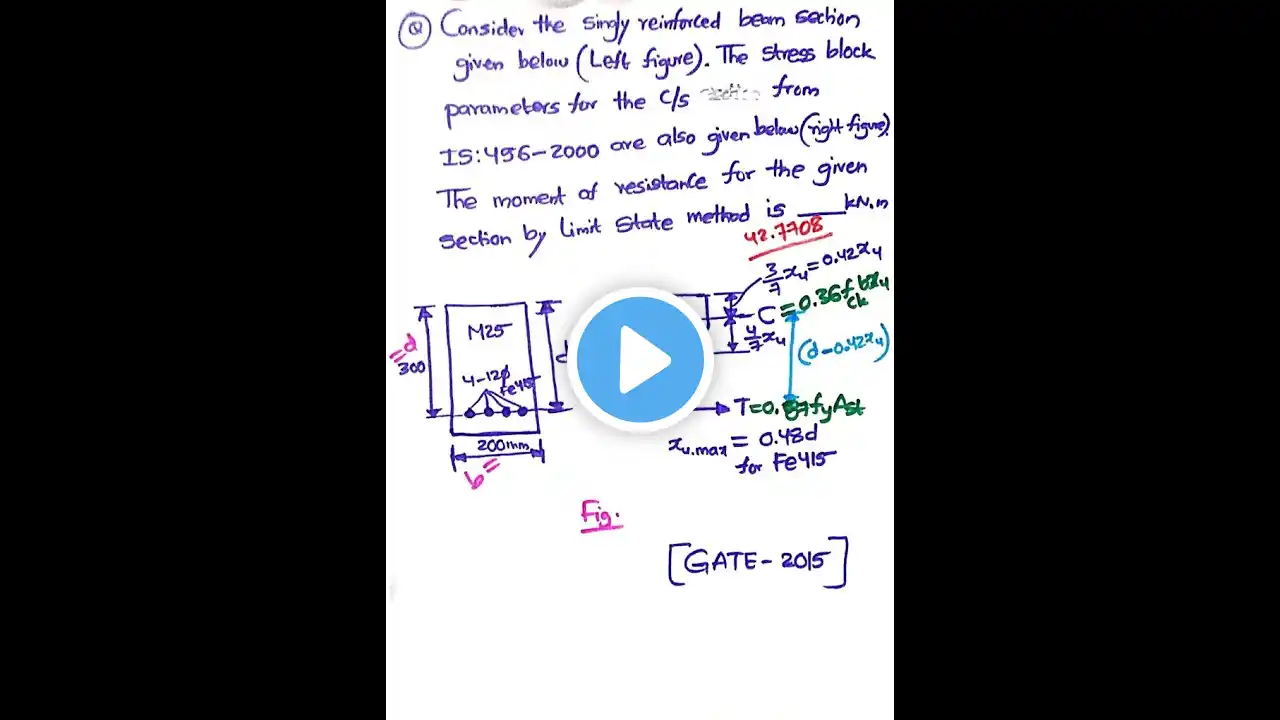 Q Consider the singly reinforced beam section
given below (Left figure). The stress block
parameters for the c/s from
IS:456-2000 are also given below (right figure).
The moment of resistance for the given
section by Limit State method is ___ kN.m
42.7708
3/7 xu = 0.42xu
C = 0.36fck bxu
4/7 xu
(d-0.42xu)
M25
=d
300
d
4-12ϕ
Fe415
T=0.87fyAst
200mm
b=
xu.max = 0.48d
for Fe415
Fig.
[GATE-2015]